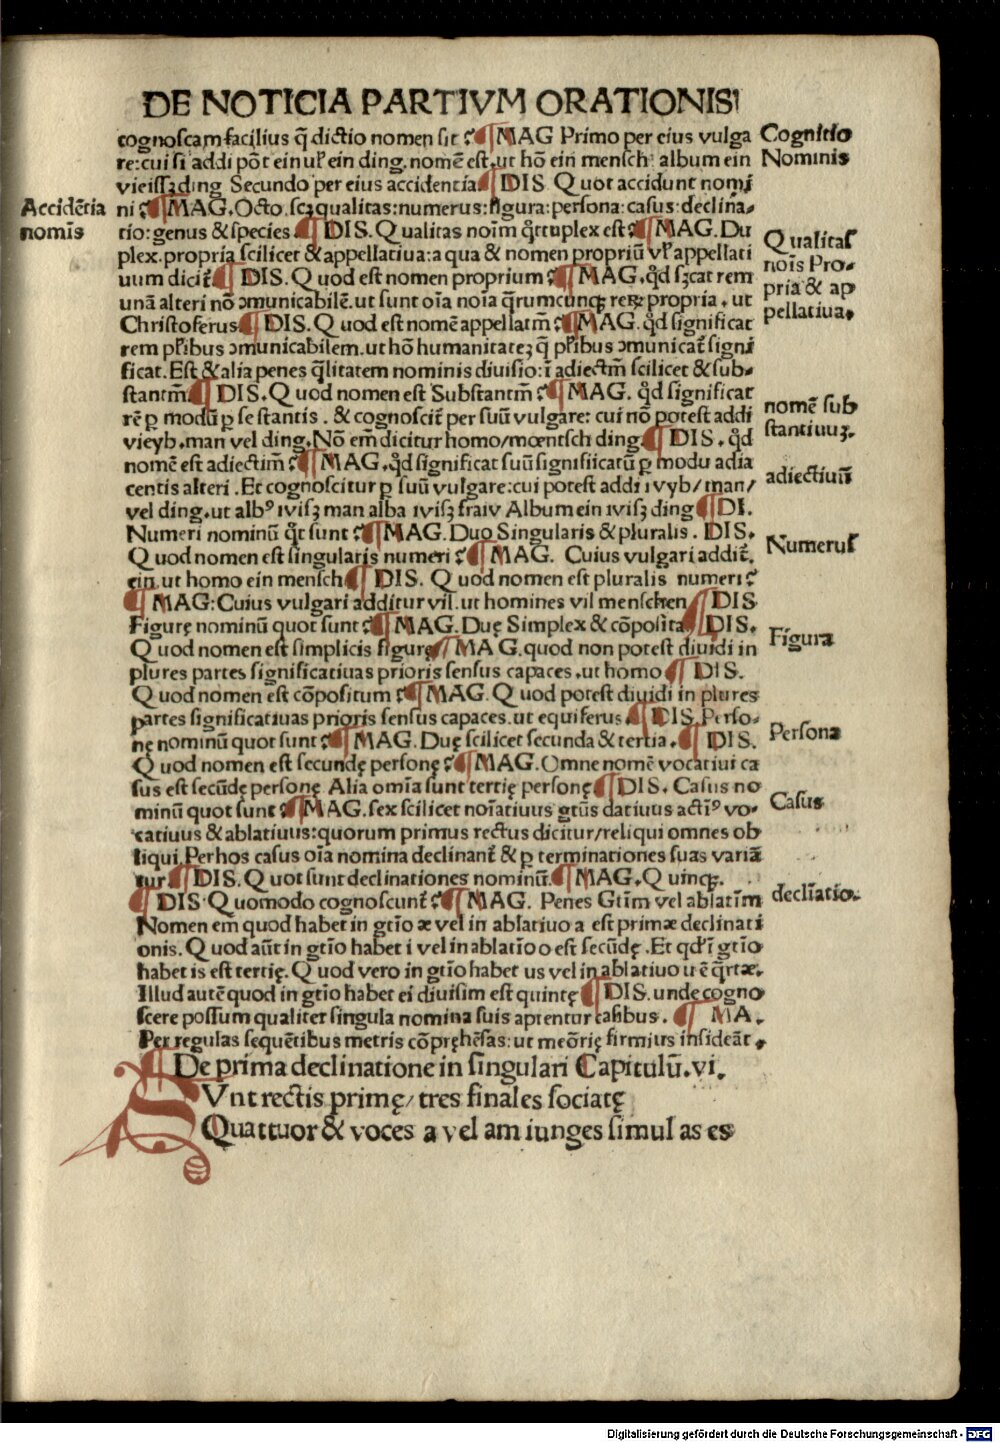 DE NOTICIA PARTIVM ORATIONIS
cognoscam facilius q̄ dictio nomen sit ? ¶ MAG Primo per eius vulga
re: cui si addi pōt ein uł ein ding. nomē est. ut hō ein mensch: album ein
vieissȝ ding Secundo per eius accidentia ¶ DIS Quot accidunt nomi
ni ? ¶ MAG. Octo. scȝ qualitas: numerus: figura: persona: casus: declina-
tio: genus & species ¶ DIS. Qualitas noīm q̄tuplex est ? ¶ MAG. Du
plex. propria scilicet & appellatiua: a qua & nomen propriū vł appellati
uum dicit᷑ ¶ DIS. Quod est nomen proprium ? ¶ MAG. qd̄ sȝcat rem
unā alteri nō ↄmunicabilē. ut sunt oīa noīa q̄rumcunqȝ reꝝ propria. ut
Christoferus ¶ DIS. Quod est nomē appellatm̄ ? ¶ MAG. qd̄ significat
rem płibus ↄmunicabilem. ut hō humanitateȝ q̄ płibus ↄmunicat᷑ signi
ficat. Est & alia penes q̄litatem nominis diuisio: ī adiectm̄ scilicet & sub-
stantm̄ ¶ DIS. Quod nomen est Substantm̄ ? ¶ MAG. qd̄ significat
rē ꝑ modū ꝑ se stantis. & cognoscit᷑ per suū vulgare: cui nō potest addi
vieyb. man vel ding. Nō em̄ dicitur homo/ moentsch ding ¶ DIS. qd̄
nomē est adiectim̄ ? ¶ MAG. qd̄ significat suū signifiicatū ꝑ modu adia
centis alteri. Et cognoscitur ꝑ suū vulgare: cui potest addi ivyb/ man/
vel ding. ut albꝰ ivisȝ man alba ivisȝ fraiv Album ein ivisȝ ding ¶ DI.
Numeri nominū q̄t sunt ? ¶ MAG. Duo Singularis & pluralis. DIS.
Quod nomen est singularis numeri ? ¶ MAG. Cuius vulgari addit᷑.
ein. ut homo ein mensch ¶ DIS. Quod nomen est pluralis numeri ?
¶ MAG: Cuius vulgari additur vil. ut homines vil menschen ¶ DIS
Figurę nominū quot sunt ? ¶ MAG. Duę Simplex & cōposita ¶ DIS.
Quod nomen est simplicis figurę ¶ MAG. quod non potest diuidi in
plures partes significatiuas prioris sensus capaces. ut homo ¶ DIS.
Quod nomen est cōpositum ? ¶ MAG. Quod potest diuidi in plures
partes significatiuas prioris sensus capaces. ut equiferus ¶ DIS. Perso-
nę nominū quot sunt ? ¶ MAG. Duę scilicet secunda & tertia. ¶ DIS.
Quod nomen est secundę personę ? ¶ MAG. Omne nomē vocatiui ca
sus est secūdę personę Alia omīa sunt tertię personę ¶ DIS. Casus no
minū quot sunt ? ¶ MAG. sex scilicet noīatiuus gtūs datiuus actīꝰ vo-
catiuus & ablatiuus: quorum primus rectus dicitur/ reliqui omnes ob
liqui. Per hos casus oīa nomina declinant᷑ & ꝑ terminationes suas variā
tur ¶ DIS. Quot sunt declinationes nominū. ¶ MAG. Quinqȝ.
¶ DIS. Quomodo cognoscunt᷑ ? ¶ MAG. Penes Gtīm vel ablatīm
Nomen em̄ quod habet in gtīo æ vel in ablatiuo a est primæ declinati
onis. Quod aūt in gtīo habet i vel in ablatīo o est secūdę. Et qd̄ ī gtīo
habet is est tertię. Quod vero in gtīo habet us vel in ablatiuo u ē q̄rtæ.
Illud autē quod in gtīo habet ei diuisim est quintę ¶ DIS. unde cogno
scere possum qualiter singula nomina suis aptentur casibus. ¶ MA.
Per regulas sequētibus metris cōpręhēsas: ut meōrię firmius insideāt.
¶ De prima declinatione in singulari Capitulū. vi.
SVnt rectis primę/ tres finales sociatę
Quattuor & voces a vel am iunges simul as es
Accidētia
nomis
Cognitio
Nominis
Qualitas
noīs Pro-
pria & ap
pellatiua.
nomē sub
stantiuuȝ.
adiectiuū
Numerus
Figura
Persona
Casus
declīatio.
Digitalisierung gefördert durch die Deutsche Forschungsgemeinschaft - DFG